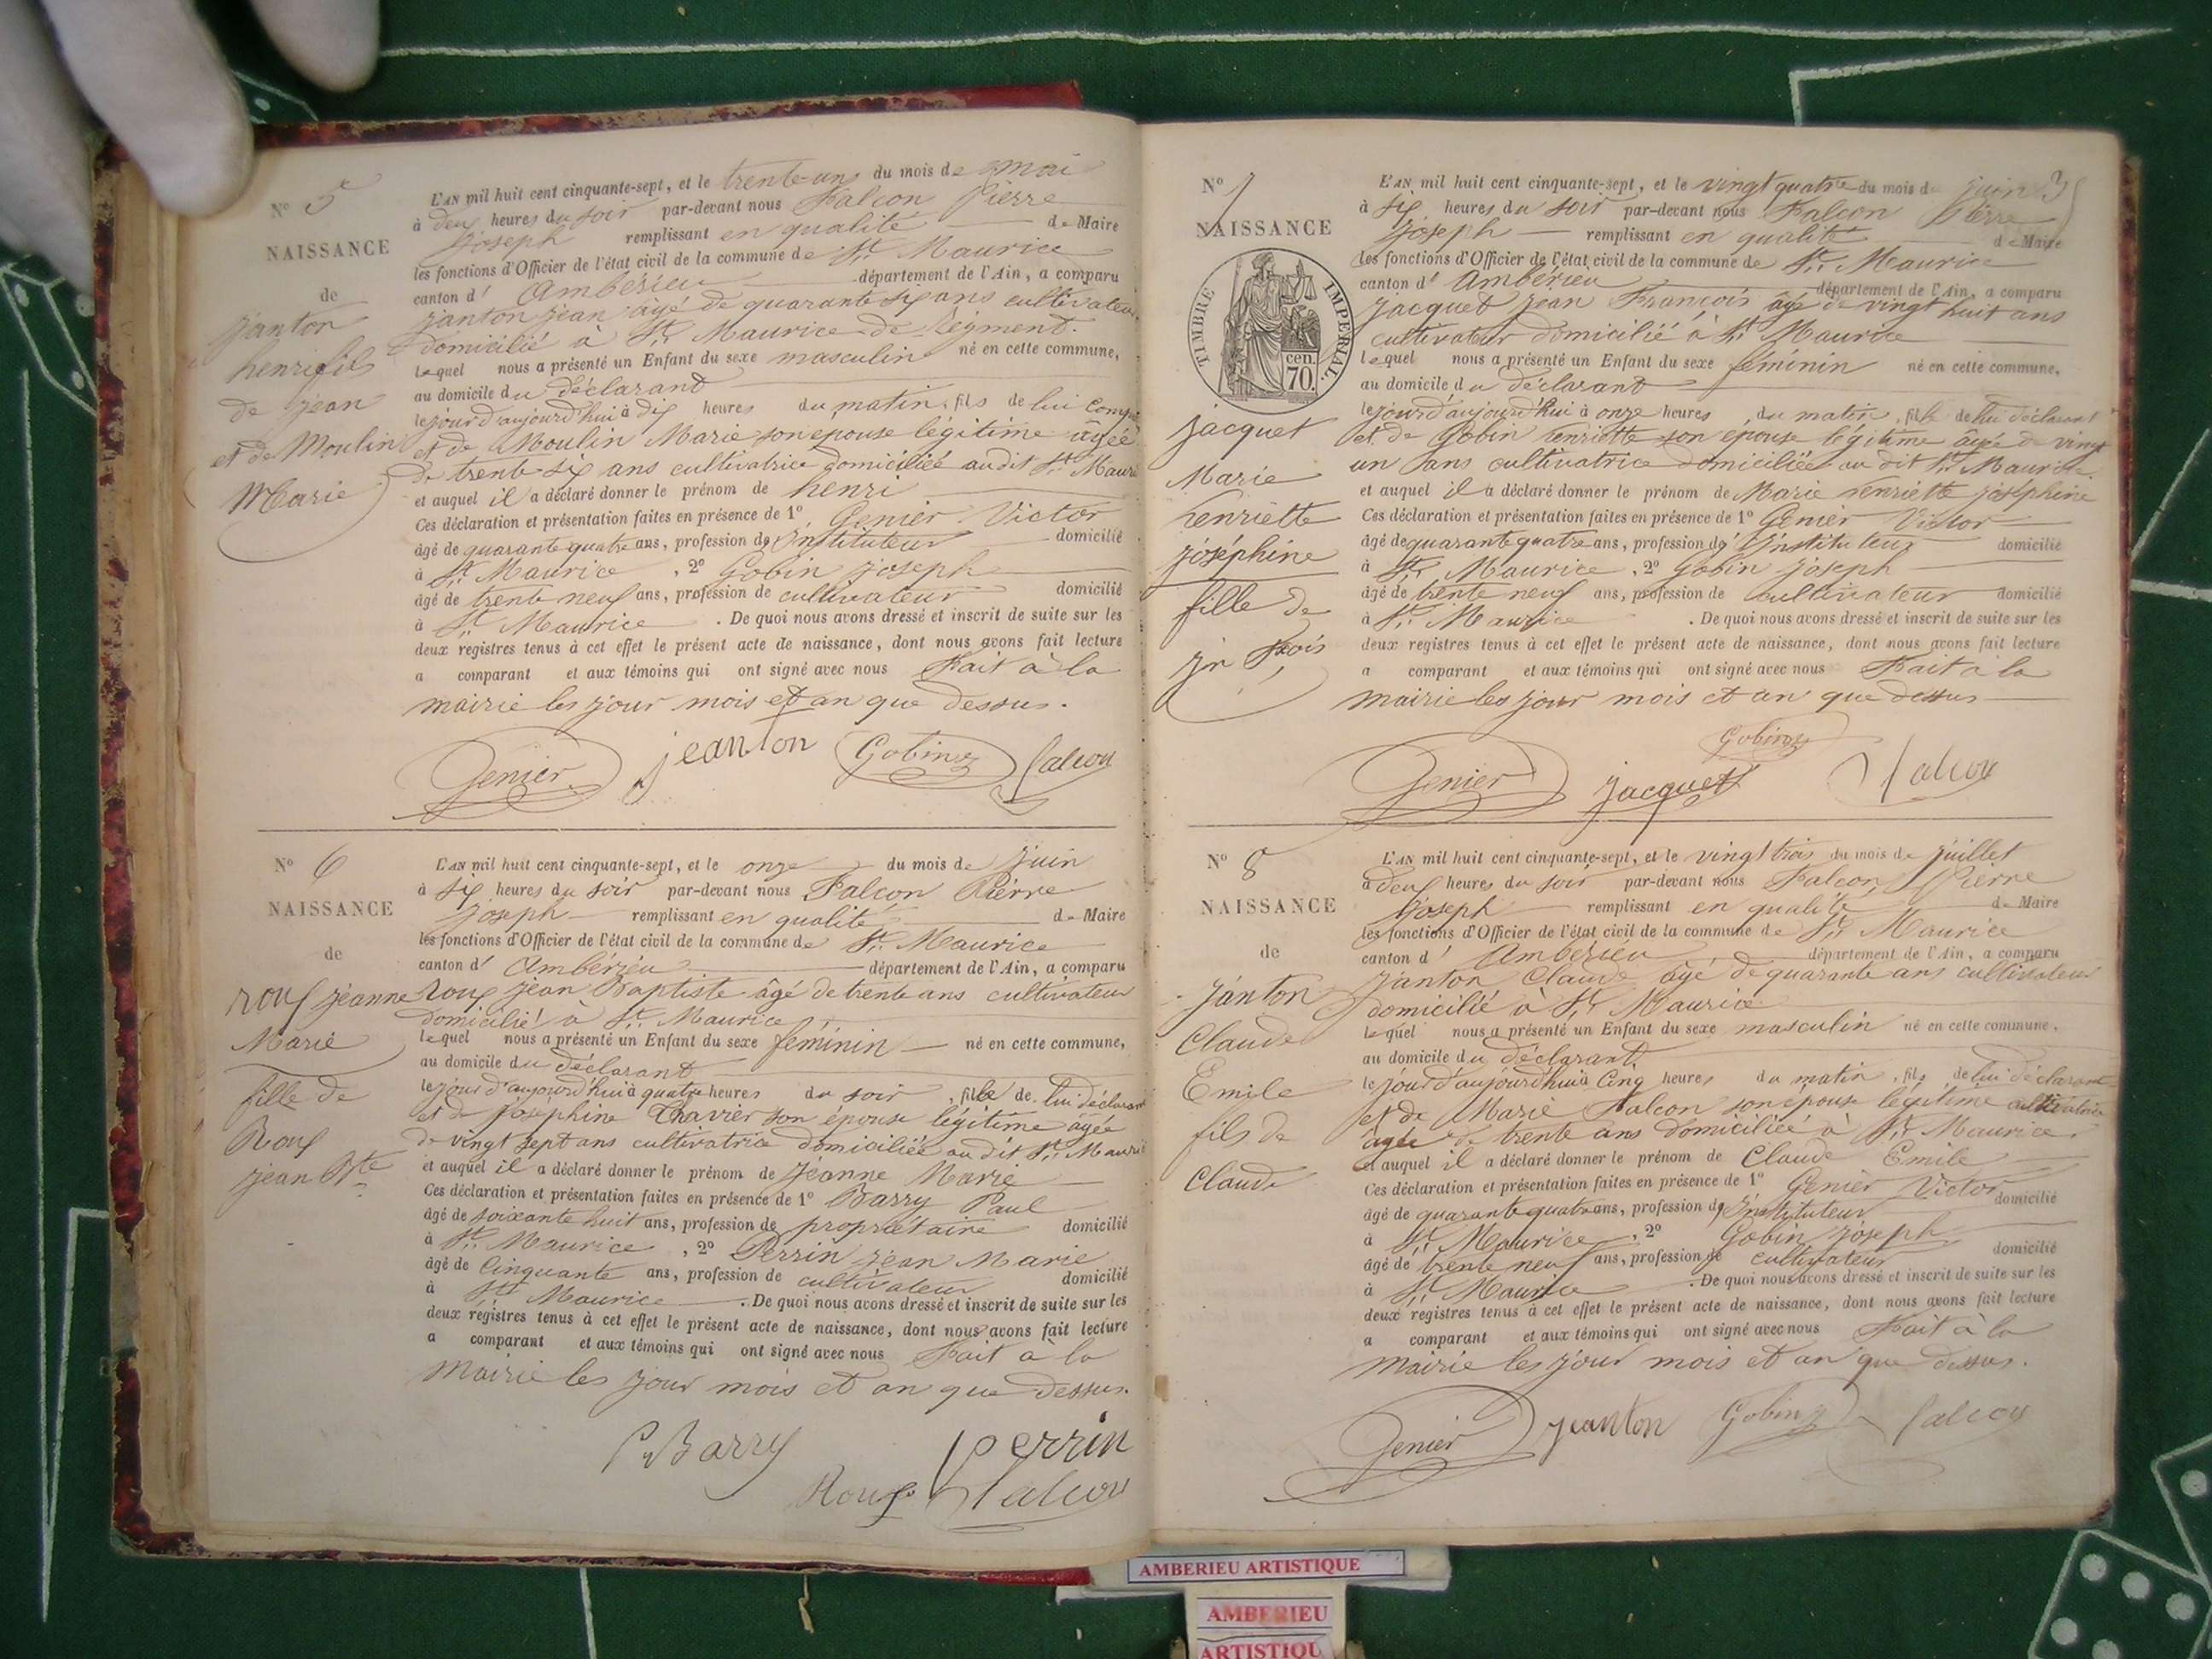 N° 5
NAISSANCE
de
janton
henri fils
de jean
et de Moulin
Marie
L'AN mil huit cent cinquante-sept, et le trente-un du mois de mai
à deux heures du soir par-devant nous Falcon Pierre
joseph remplissant en qualité de Maire
les fonctions d'Officier de l'état civil de la commune de St. Maurice
canton d' Ambérieu département de l'Ain, a comparu
janton jean âgé de quarante six ans cultivateur
domicilié à St. Maurice de Rêyment.
lequel nous a présenté un Enfant du sexe masculin né en cette commune,
au domicile du déclarant
le jour d'aujourd'hui à dix heures du matin, fils de lui
et de Moulin Marie son épouse légitime âgée
de trente six ans cultivatrice domiciliée au dit St. Mauri
et auquel il a déclaré donner le prénom de henri
Ces déclaration et présentation faites en présence de 1° Genier Victor
âgé de quarante quatre ans, profession d'Instituteur domicilié
à St. Maurice, 2° Gobin joseph
âgé de trente neuf ans, profession de cultivateur domicilié
à St. Maurice. De quoi nous avons dressé et inscrit de suite sur les
deux registres tenus à cet effet le présent acte de naissance, dont nous avons fait lecture
a comparant et aux témoins qui ont signé avec nous Fait à la
mairie les jour mois et an que dessus.
Genier jeanton Gobin falcon
N° 6
NAISSANCE
de
roux jeanne
Marie
fille de
Roux
jean Bte
L'AN mil huit cent cinquante-sept, et le onze du mois de juin
à six heures du soir par-devant nous Falcon Pierre
joseph remplissant en qualité de Maire
les fonctions d'Officier de l'état civil de la commune de St. Maurice
canton d' Ambérieu département de l'Ain, a comparu
roux jean Baptiste âgé de trente ans cultivateur
domicilié à St. Maurice
lequel nous a présenté un Enfant du sexe féminin né en cette commune,
au domicile du déclarant
le jour d'aujourd'hui à quatre heures du soir, fille de lui déclarant
et de joséphine Thavrier son épouse légitime âgée
de vingt sept ans cultivatrice domiciliée au dit St. Mauri
et auquel il a déclaré donner le prénom de jeanne Marie
Ces déclaration et présentation faites en présence de 1° Barry Paul
âgé de soixante huit ans, profession de propriétaire domicilié
à St. Maurice, 2° Perrin jean Marie
âgé de cinquante ans, profession de cultivateur domicilié
à St. Maurice. De quoi nous avons dressé et inscrit de suite sur les
deux registres tenus à cet effet le présent acte de naissance, dont nous avons fait lecture
a comparant et aux témoins qui ont signé avec nous Fait à la
Mairie les jour mois et an que dessus.
P Barry perrin
Roux falcon
N° 7
NAISSANCE
TIMBRE IMPERIAL.
cen.
70.
jacquet
Marie
henriette
joséphine
fille de
jn fcois
3
L'AN mil huit cent cinquante-sept, et le vingt quatre du mois de juin
à six heures du soir par-devant nous Falcon Pierre
joseph remplissant en qualité de Maire
les fonctions d'Officier de l'état civil de la commune de St. Maurice
canton d' Ambérieu département de l'Ain, a comparu
jacquet jean François âgé de vingt huit ans
cultivateur domicilié à St. Maurice
lequel nous a présenté un Enfant du sexe féminin né en cette commune,
au domicile du déclarant
le jour d'aujourd'hui à onze heures du matin, fille de lui déclarant
et de Gobin henriette son épouse légitime âgée de vingt
un ans cultivatrice domiciliée au dit St. Maurice
et auquel il a déclaré donner le prénom de Marie henriette joséphine
Ces déclaration et présentation faites en présence de 1° Genier Victor
âgé de quarante quatre ans, profession d'Instituteur domicilié
à St. Maurice, 2° Gobin joseph
âgé de trente neuf ans, profession de cultivateur domicilié
à St. Maurice. De quoi nous avons dressé et inscrit de suite sur les
deux registres tenus à cet effet le présent acte de naissance, dont nous avons fait lecture
a comparant et aux témoins qui ont signé avec nous Fait à la
mairie les jour mois et an que dessus
Gobin
Genier jacquet falcon
N° 8
NAISSANCE
de
janton
Claude
Emile
fils de
Claude
L'AN mil huit cent cinquante-sept, et le vingt trois du mois de juillet
à deux heures du soir par-devant nous Falcon Pierre
joseph remplissant en qualité de Maire
les fonctions d'Officier de l'état civil de la commune de St. Maurice
canton d' Ambérieu département de l'Ain, a comparu
janton Claude âgé de quarante ans cultivateur
domicilié à St. Maurice
lequel nous a présenté un Enfant du sexe masculin né en cette commune,
au domicile du déclarant
le jour d'aujourd'hui à cinq heures du matin, fils de lui déclarant
et de Marie Falcon son épouse légitime cultivatrice
âgée de trente ans domiciliée à St. Maurice
et auquel il a déclaré donner le prénom de Claude Emile
Ces déclaration et présentation faites en présence de 1° Genier Victor
âgé de quarante quatre ans, profession d'Instituteur domicilié
à St. Maurice, 2° Gobin joseph
âgé de trente neuf ans, profession de cultivateur domicilié
à St. Maurice. De quoi nous avons dressé et inscrit de suite sur les
deux registres tenus à cet effet le présent acte de naissance, dont nous avons fait lecture
a comparant et aux témoins qui ont signé avec nous Fait à la
mairie les jour mois et an que dessus.
Genier jeanton Gobin falcon
AMBERIEU ARTISTIQUE
AMBERIEU
ARTISTIQU